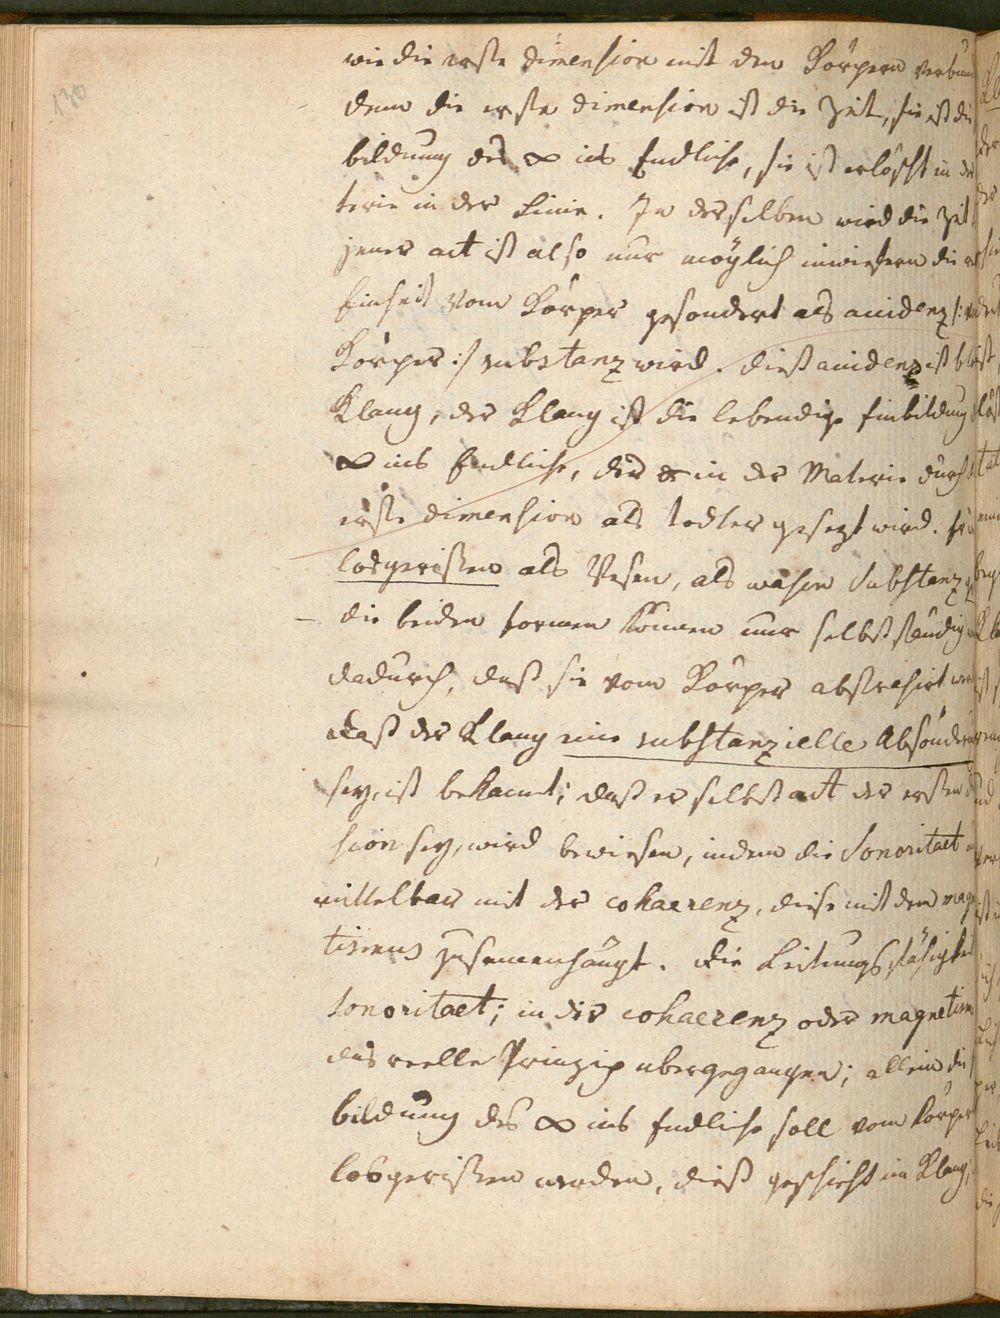 130
wie die erste dimension mit den Körpern verbun
denn die erste dimension ist die Zeit, sie ist die
bildung des ∞ ins Endliche, sie ist erlöscht in der
terie in der Linie. In derselben wird die Zeit
jener act ist also nur möglich inwiefern die
Einheit vom Körper gesondert als accidenz /: vom
Körper :/ substanz wird. dieß accidenz ist
Klang, der Klang ist die lebendige Einbildung
∞ ins Endliche, die in der Materie durch
erste dimension als todtes gesezt wird.
losgerissen als Wesen, als wahre Substanz
die beiden formen können nur selbstständig
dadurch, daß sie vom Körper abstrahirt
daß der Klang eine substanzielle Absonder
sey, ist bekannt; daß er selbst act der ersten
sion sey, wird bewiesen, indem die Sonoritaet
mittelbar mit der cohaerenz, diese mit dem magne
tismus zusamenhängt. die Leitungsfähigkeit
sonoritaet; in der cohaerenz oder magnetism
das reelle Prinzip übergegangen; allein die
bildung des ∞ ins Endliche soll vom Körper
losgerissen werden, dieß geschieht im Klang,